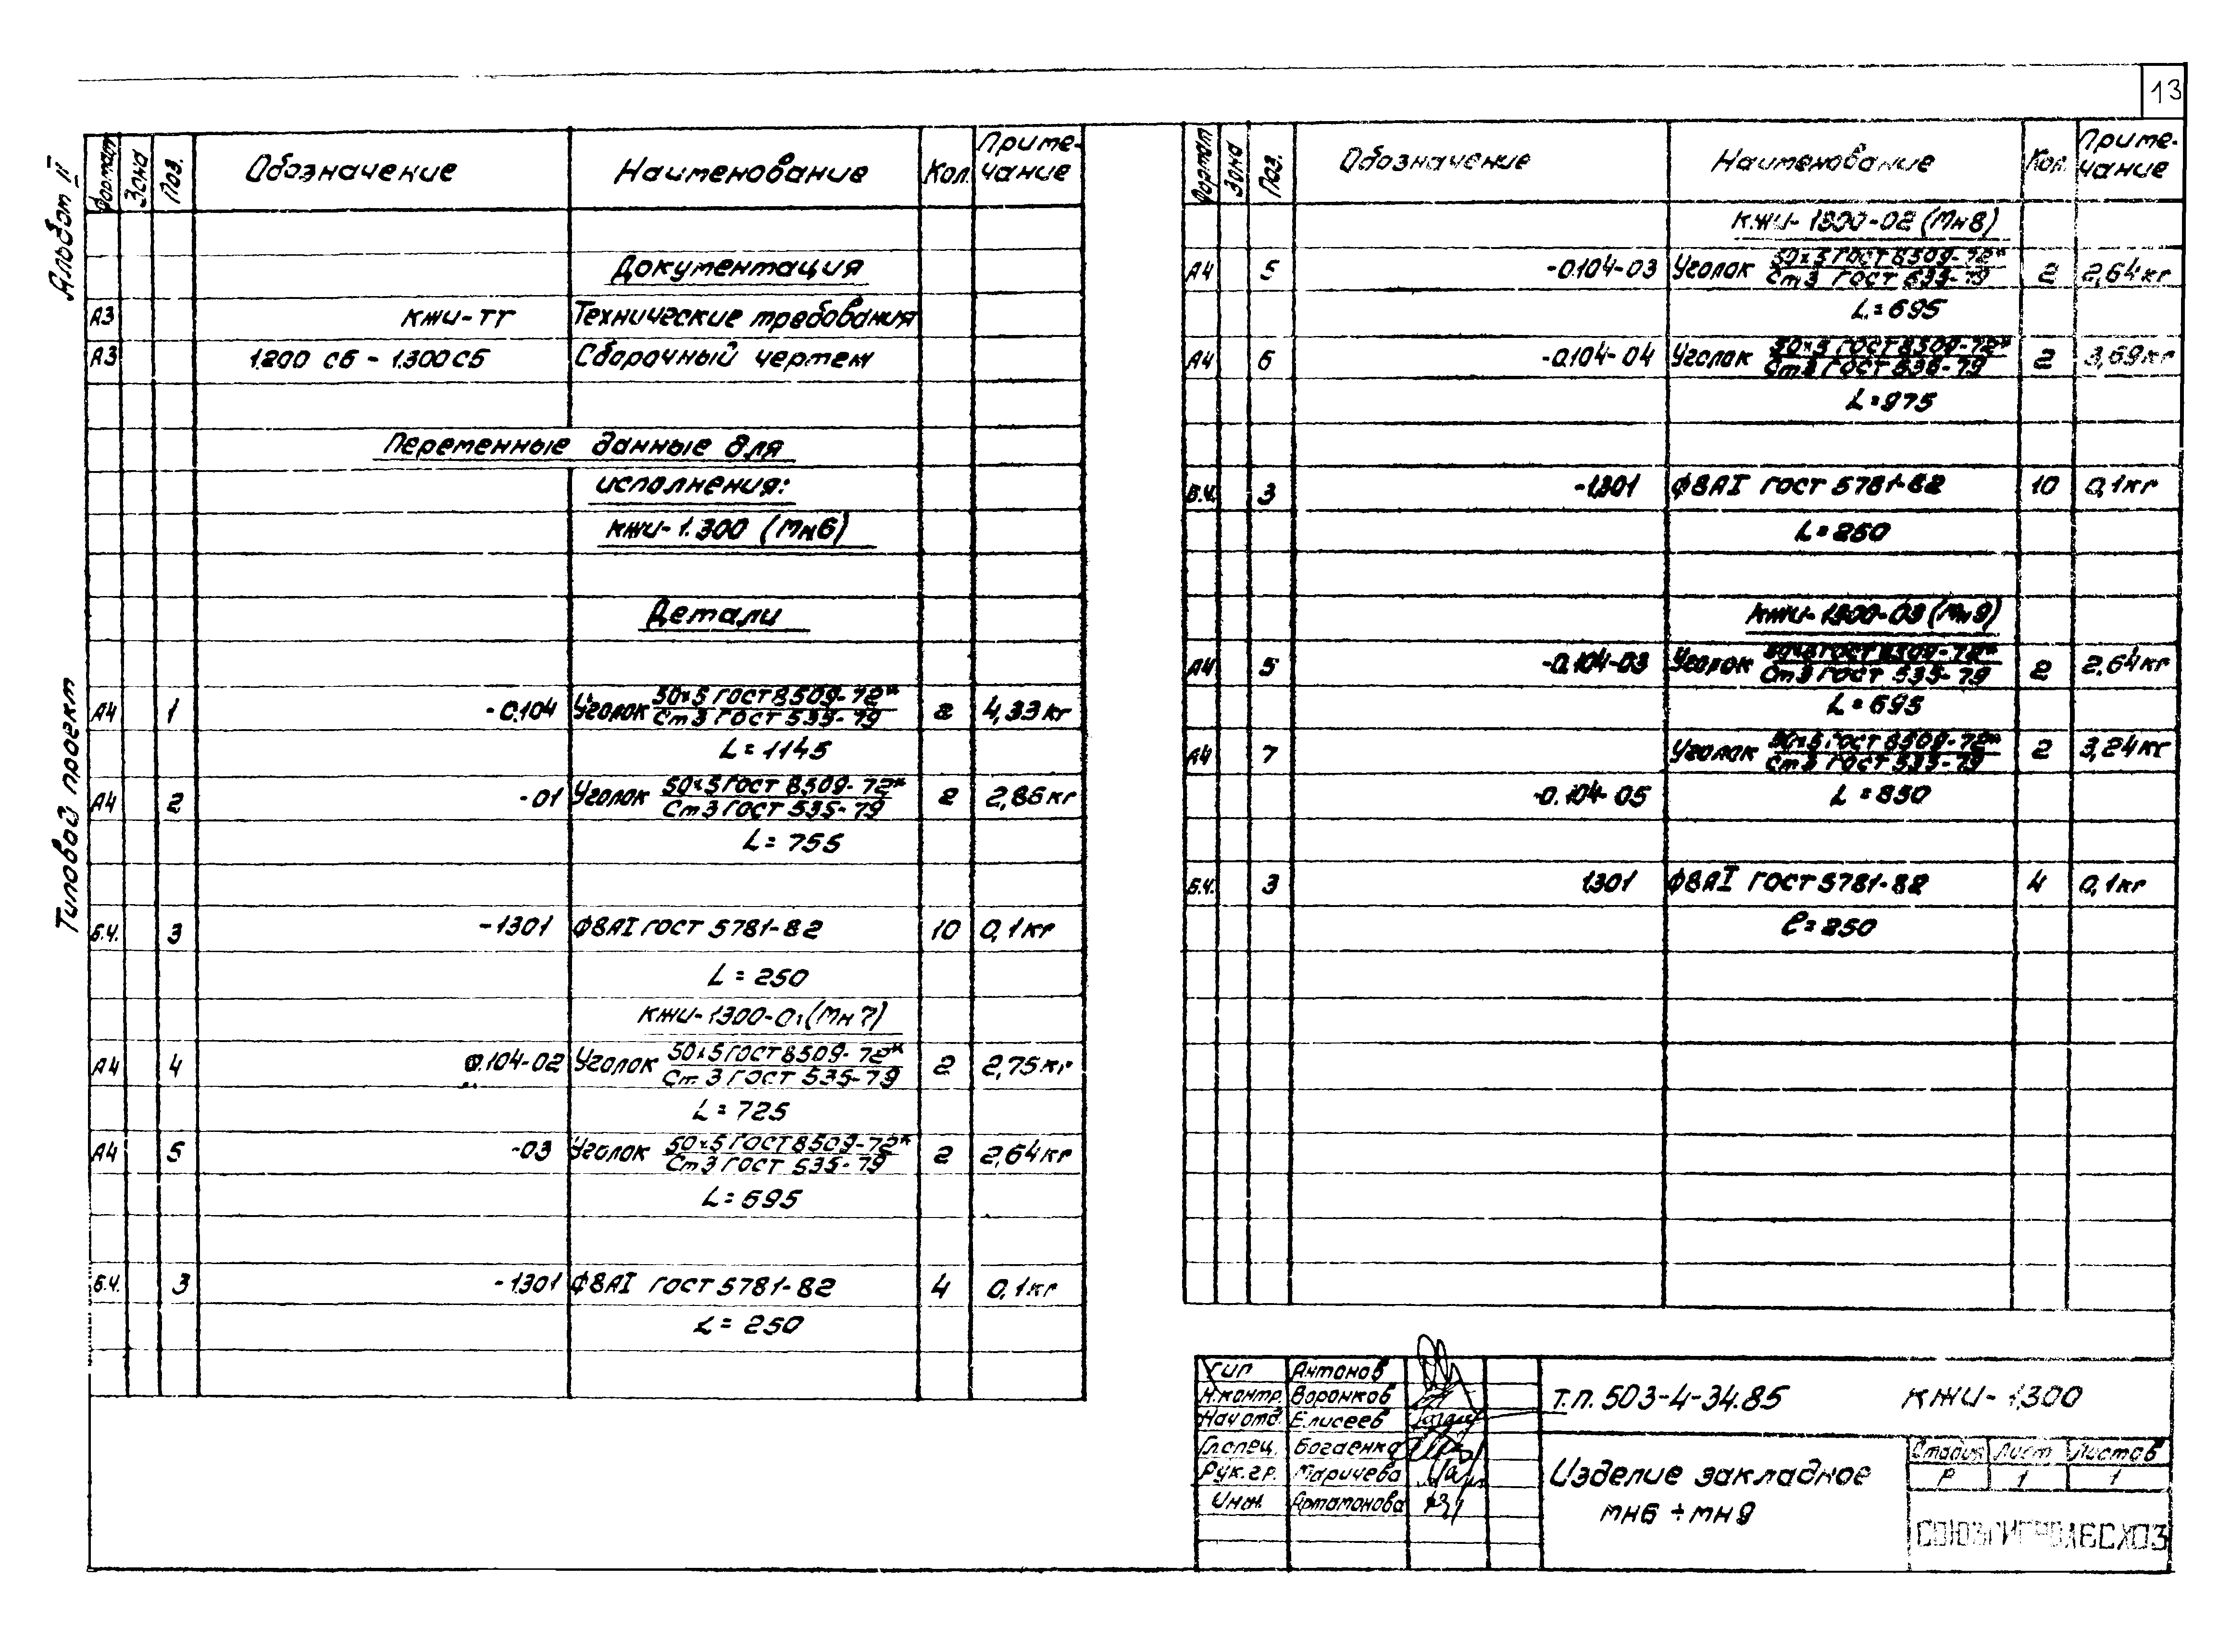 13
Альбом II
Типовой проект
Формат Зона Поз. Обозначение Наименование Кол. Приме-чание
Документация
А3 КЖИ-ТТ Технические требования
А3 1.200 СБ - 1.300 СБ Сборочный чертеж
Переменные данные для
исполнения:
КЖИ-1.300 (МН6)
Детали
А4 1 -0.104 Уголок 50×5 ГОСТ 8509-72* / Ст3 ГОСТ 535-79 2 4,33 кг
L=1145
А4 2 -01 Уголок 50×5 ГОСТ 8509-72* / Ст3 ГОСТ 535-79 2 2,86 кг
L=755
Б.Ч. 3 -1.301 Ф8АI ГОСТ 5781-82 10 0,1 кг
L=250
КЖИ-1.300-01 (МН7)
А4 4 0.104-02 Уголок 50×5 ГОСТ 8509-72* / Ст.3 ГОСТ 535-79 2 2,75 кг
L=725
А4 5 -03 Уголок 50×5 ГОСТ 8509-72* / Ст3 ГОСТ 535-79 2 2,64 кг
L=695
Б.Ч. 3 -1.301 Ф8АI ГОСТ 5781-82 4 0,1 кг
L=250
Формат Зона Поз. Обозначение Наименование Кол. Приме-чание
КЖИ-1300-02 (МН8)
А4 5 -0.104-03 Уголок 50×5 ГОСТ 8509-72* / Ст3 ГОСТ 535-79 2 2,64 кг
L=695
А4 6 -0.104-04 Уголок 50×5 ГОСТ 8509-72* / Ст3 ГОСТ 535-79 2 3,69 кг
L=975
Б.Ч. 3 -1.301 Ф8АI ГОСТ 5781-82 10 0,1 кг
L=250
КЖИ-1300-03 (МН9)
А4 5 -0.104-03 Уголок 50×5 ГОСТ 8509-72* / Ст3 ГОСТ 535-79 2 2,64 кг
L=695
А4 7 Уголок 50×5 ГОСТ 8509-72* / Ст3 ГОСТ 535-79 2 3,24 кг
-0.104-05 L=850
Б.Ч. 3 1.301 Ф8АI ГОСТ 5781-82 4 0,1 кг
ℓ=250
ГИП Антонов
Н.контр. Воронков
Нач отд. Елисеев
Гл.спец. Богаенко
Рук.гр. Маричева
Инж. Артамонова
Т.П. 503-4-34.85 КЖИ-1.300
Изделие закладное
МН6 ÷ МН9
Стадия Лист Листов
Р 1 1
СОЮЗГИПРОЛЕСХОЗ